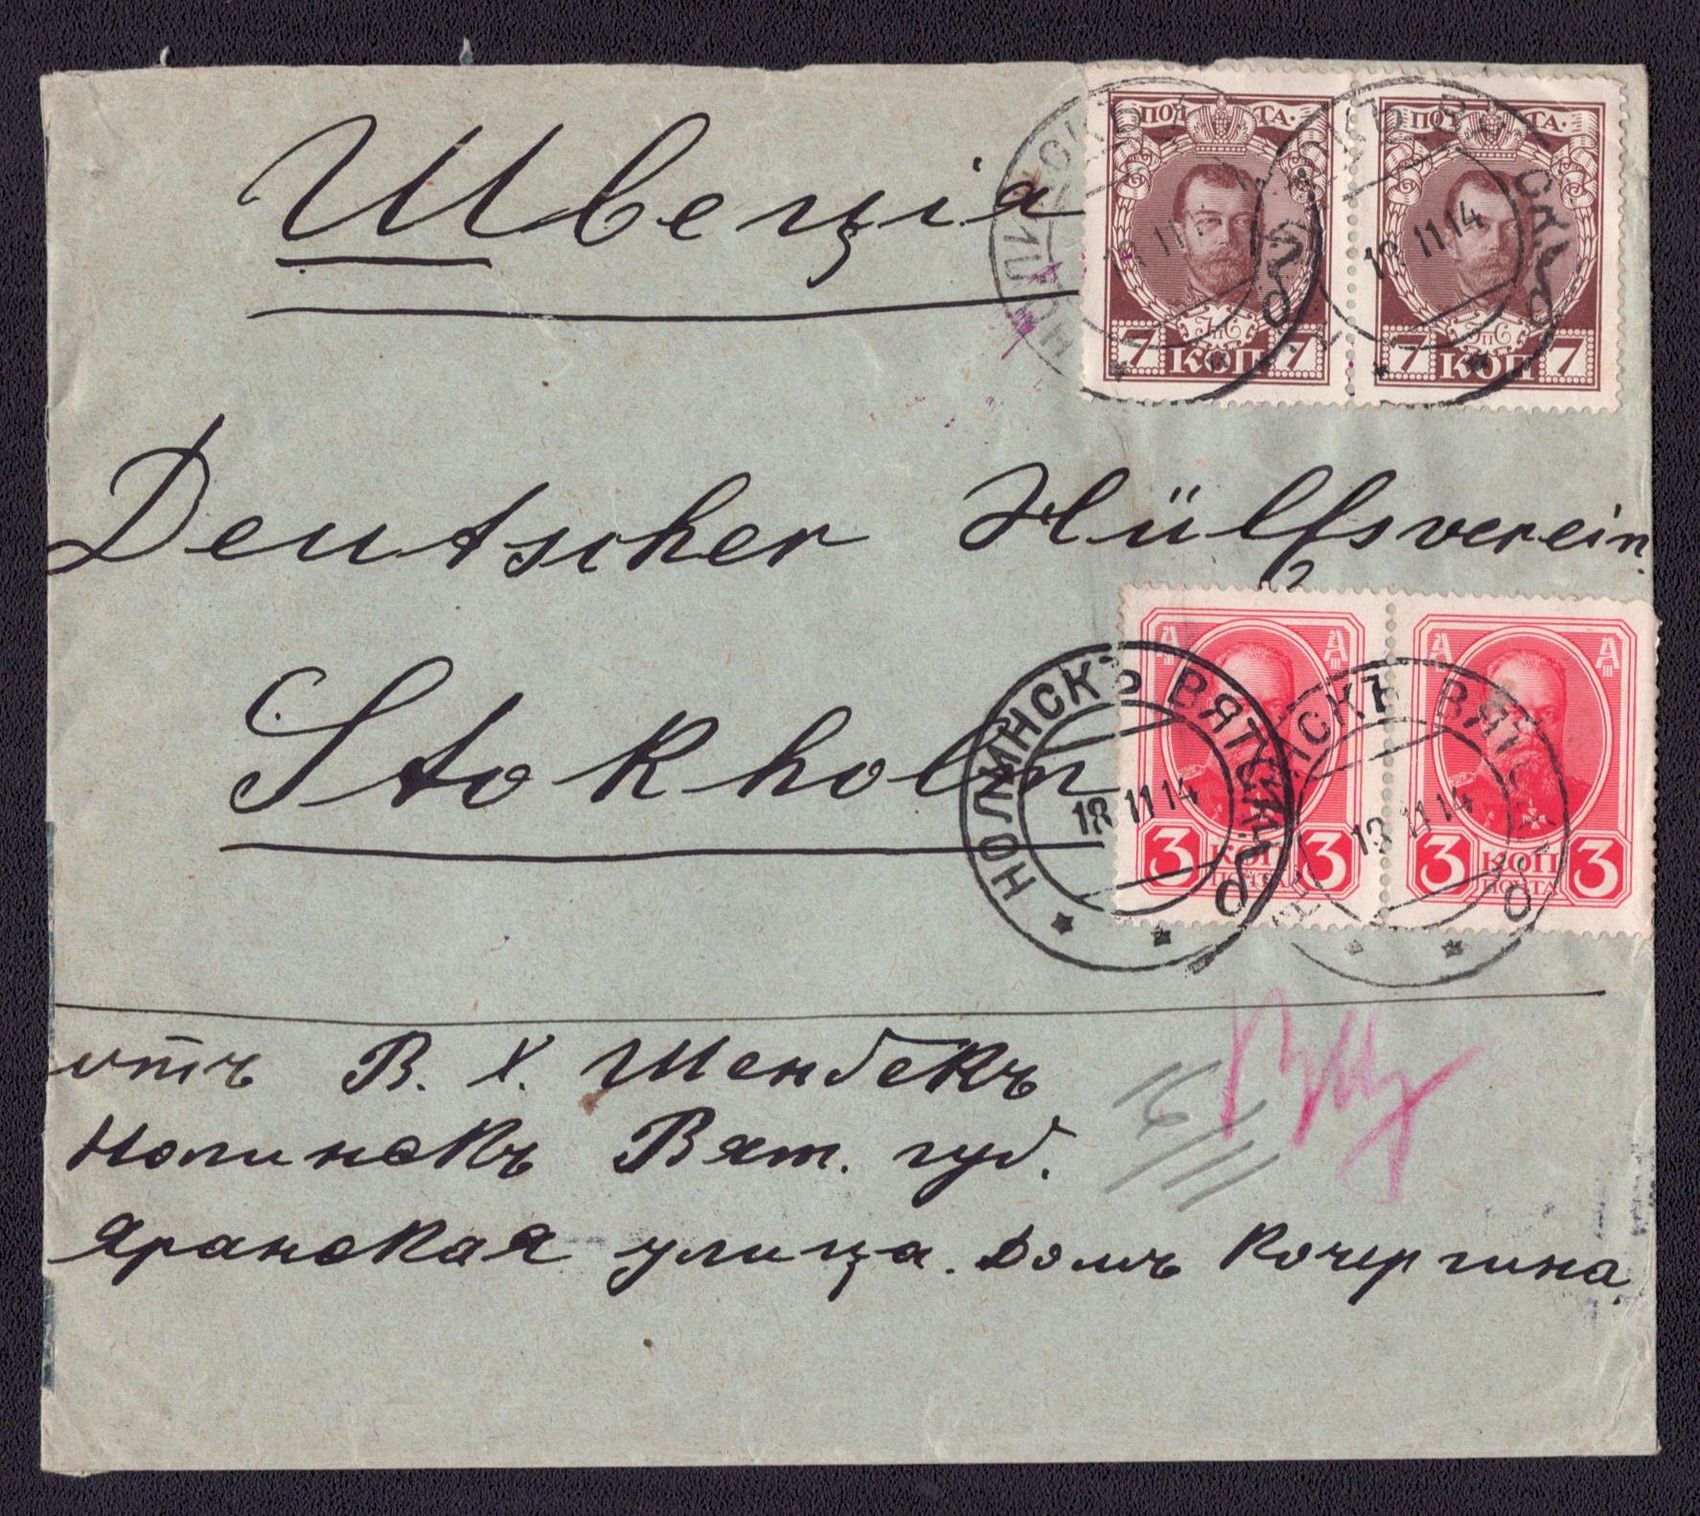 Швеція
ПОЧТА.
7 КОП 7
ПОЧТА.
7 КОП 7
НОЛИНСКЪ ВЯТСК.
18 11 14
Deutscher Hülfsverein.
Stokholm
3 КОП 3
ПОЧТА
3 КОП 3
ПОЧТА
НОЛИНСКЪ ВЯТСК.
18 11 14
НОЛИНСКЪ ВЯТСК.
18 11 14
отъ В. Х. Шенбекъ
Нолинскъ Вят. губ.
16/11
Яранская улица. Домъ Кочергина.